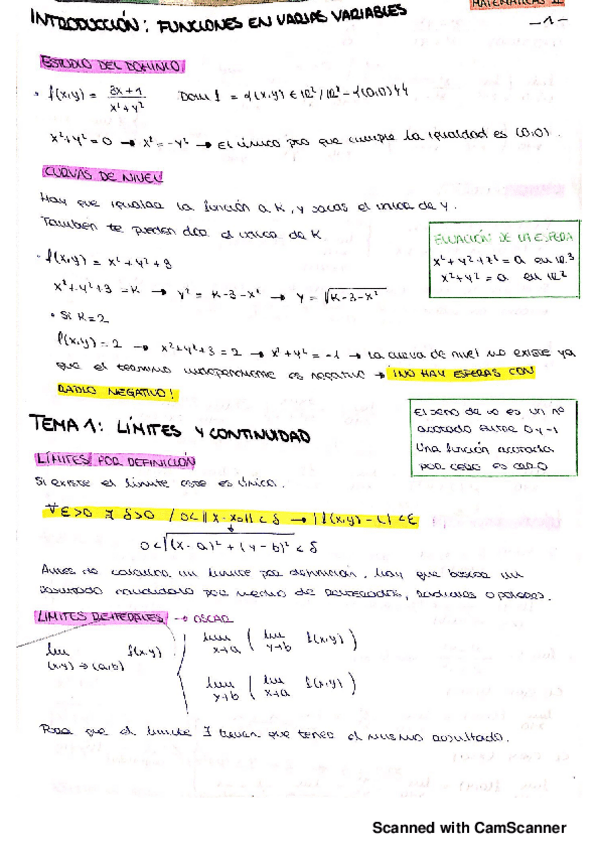 MATEMÁTICAS II
INTRODUCCIÓN: FUNCIONES EN VARIAS VARIABLES
-1-
ESTUDIO DEL DOMINIO
· f(x,y) = 3x+1 / x²+y²   Dom f = {(x,y) ∈ ℝ² / ℝ² - {(0,0)}}
x²+y² = 0 → x² = -y² → El único pto que cumple la igualdad es (0,0).
CURVAS DE NIVEL
Hay que igualar la función a K, y sacas el valor de y.
También te pueden dar el valor de K
· f(x,y) = x²+y²+3
x²+y²+3 = K → y² = K-3-x² → y = √K-3-x²
• Si K=2
f(x,y) = 2 → x²+y²+3 = 2 → x²+y² = -1 → La curva de nivel no existe ya
que el termino independiente es negativo → ¡NO HAY ESFERAS CON
RADIO NEGATIVO!
ECUACIÓN DE LA ESFERA
x²+y²+z² = a en ℝ³
x²+y² = a en ℝ²
TEMA 1: LÍMITES Y CONTINUIDAD
El seno de ∞ es un nº
acotado entre 0 y -1
Una función acotada
por cero es cero
LÍMITES POR DEFINICIÓN
Si existe el límite este es único.
∀ε>0 ∃ δ>0 / 0<||x-x₀||<δ → |f(x,y)-L|<ε
0<√(x-a)²+(y-b)² <δ
Antes de calcular un límite por definición, hay que buscar un
resultado por medio de reiterados, radiales o polares.
LÍMITES REITERADOS → OSCAR
lim f(x,y)
(x,y)→(a,b)
lim x→a ( lim y→b f(x,y) )
lim y→b ( lim x→a f(x,y) )
Para que el límite ∃ tienen que tener el mismo resultado.
Scanned with CamScanner